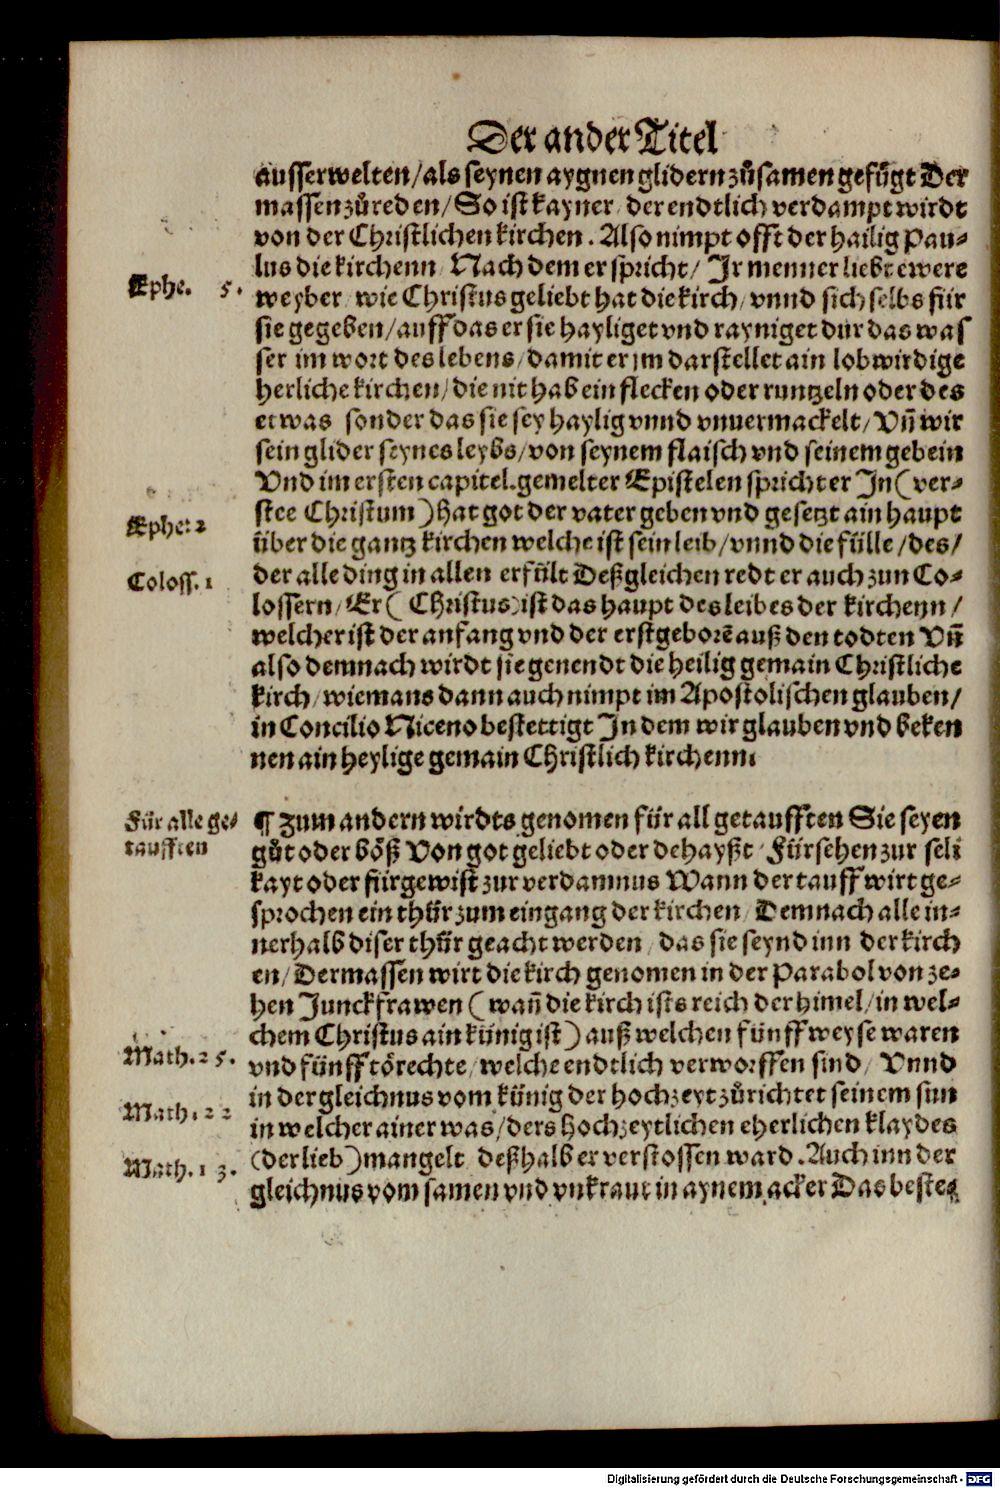 Der ander Titel
ausserwelten/als seynen aygnen glidern zůsamen gefůgt Der
massen zůreden/So ist kayner/der endtlich verdampt wirdt
von der Christlichen kirchen. Also nimpt offt der hailig Pau-
lus die kirchenn/Nach dem er spricht/Ir menner liebt ewere
Ephe. 5.
weyber/wie Christus geliebt hat die kirch/vnnd sich selbs für
sie gegeben/auff das er sie hayliget vnd rayniget dur das was
ser im wort des lebens/damit er jm darstellet ain lobwirdige
herliche kirchen/die nit hab ein flecken oder runtzeln oder des
etwas sonder das sie sey haylig vnnd vnuermackelt/Vñ wir
sein glider seynes leybs/von seynem flaisch vnd seinem gebein
Vnd im ersten capitel.gemelter Epistelen spricht er In(ver-
Ephe: 2
stee Christum)hat got der vater geben vnd gesetzt ain haupt
über die gantz kirchen welche ist sein leib/vnnd die fülle/des/
Coloss. 1
der alle ding in allen erfült Deßgleichen redt er auch zun Co-
lossern/Er(Christus)ist das haupt des leibes der kirchenn/
welcher ist der anfang vnd der erstgeborẽ auß den todten Vñ
also demnach wirdt sie genendt die heilig gemain Christliche
kirch/wiemans dann auch nimpt im Apostolischen glauben/
in Concilio Niceno bestettigt In dem wir glauben vnd beken
nen ain heylige gemain Christlich kirchenn.
Für alle ge-
taufften
¶ Zum andern wirdts genomen für all getaufften Sie seyen
gůt oder böß Von got geliebt oder dehayßt/Fürsehen zur seli
kayt oder fürgewist zur verdamnus Wann der tauff wirt ge-
sprochen ein thür zum eingang der kirchen/Demnach alle in-
nerhalb diser thür geacht werden/das sie seynd inn der kirch
en/Dermassen wirt die kirch genomen in der Parabol von ze-
hen Junckfrawen(wañ die kirch ists reich der himel/in wel-
Math. 25.
chem Christus ain künig ist)auß welchen fünff weyse waren
vnd fünff törechte/welche endtlich verworffen sind/Vnnd
Math. 22
in der gleichnus vom künig der hochzeyt zůrichtet seinem sun
in welcher ainer was/ders hochzeytlichen eherlichen klaydes
Math. 13.
(der lieb)mangelt deßhalb er verstossen ward.Auch inn der
gleichnus vom samen vnd vnkraut in aynem acker Das beste
Digitalisierung gefördert durch die Deutsche Forschungsgemeinschaft - DFG